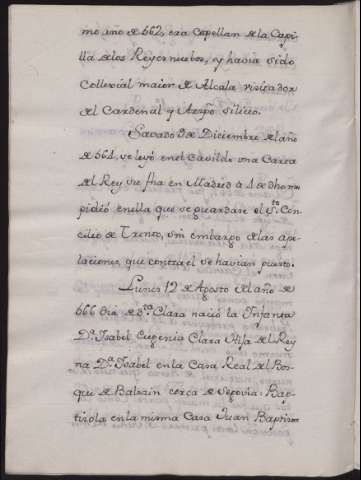 mo año de 562, era Capellan de la Capi-
lla de los Reyes nuebos, y havia sido
Collexial maior de Alcala visitador
del Cardenal y Arzpo Siliceo.
Savado 9 de Diciembre del año
de 564, se leyó en el Cavildo una Carta
del Rey su fha en Madrid à 4 de dho mes
pidió en ella que se guardase el Sto Con-
cilio de Trento, sin embargo de las ape-
laciones que contra él se havian puesto.
Lunes 12 de Agosto del año de
566 dia de Sta Clara nació la Infanta
Da Isabel Eugenia Clara Hija del Rey
na Da Isabel en la Casa Real del Bos-
que de Balsain cerca de Segovia: Bap-
tizola en la misma Casa Juan Baptista